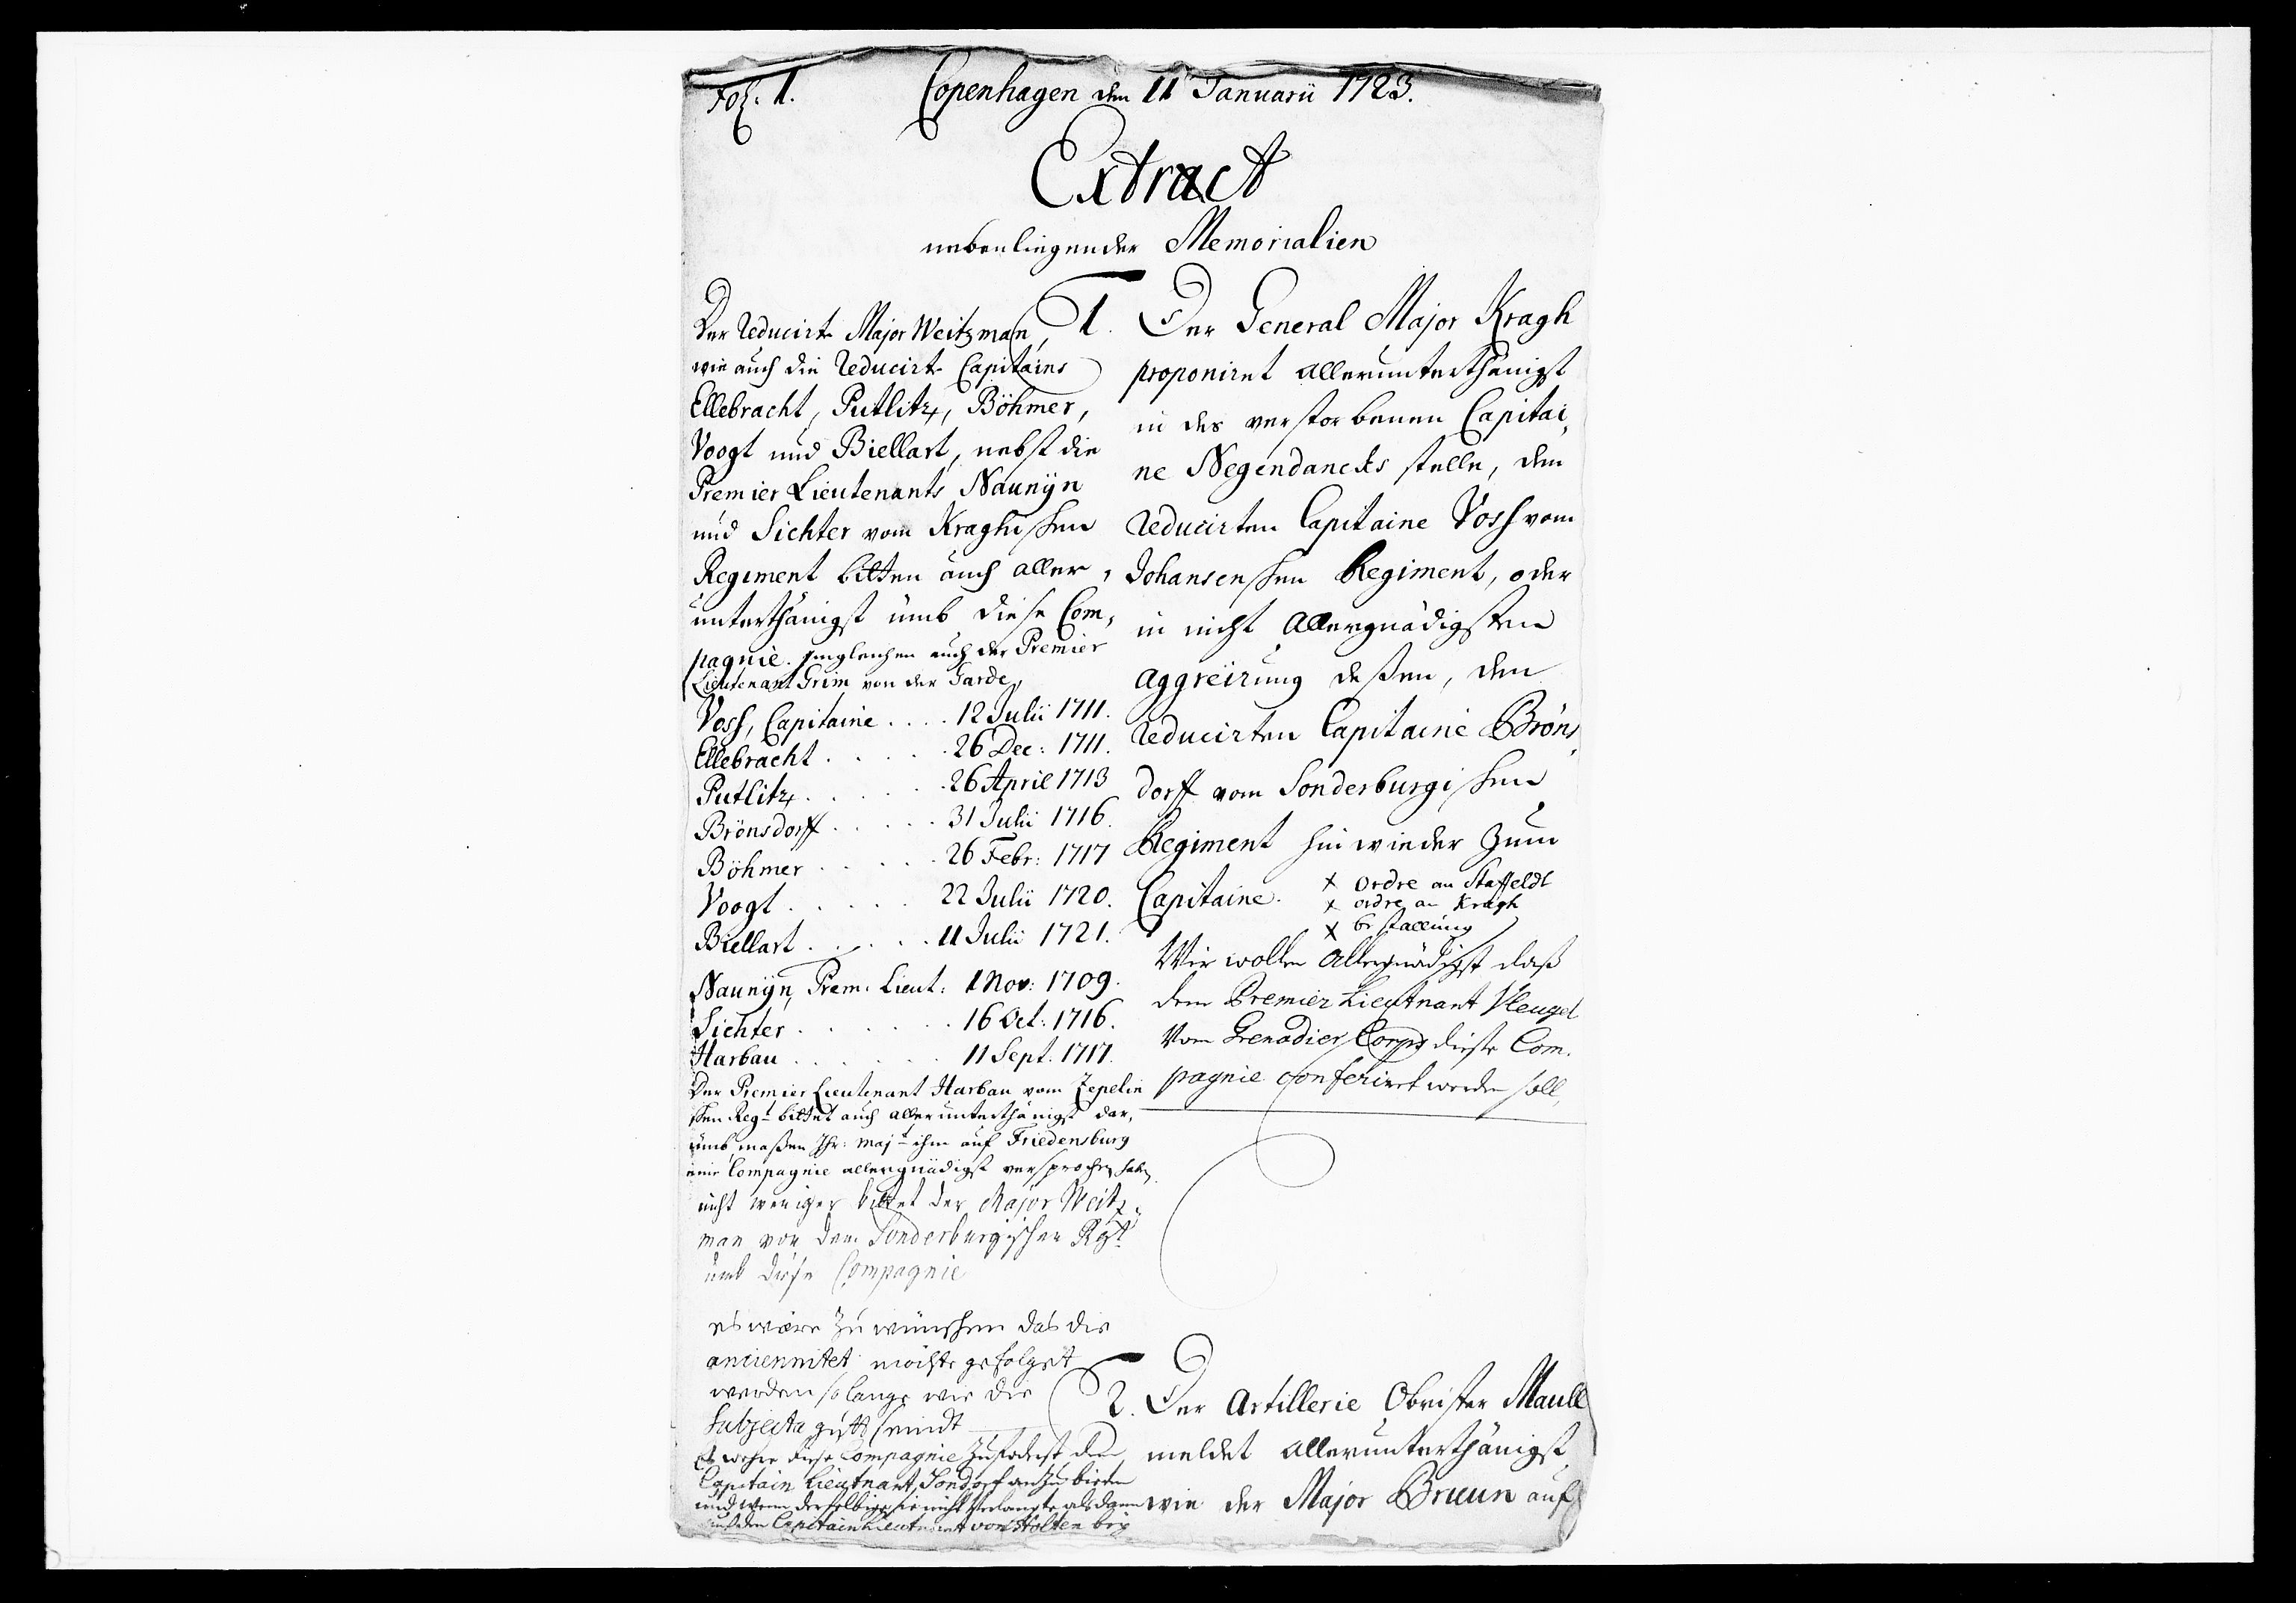 Fol. 1.
Copenhagen den 11 Januarii 1723.
Extract
nebenliegender Memorialien
Der Reducirte Major Weitzman,
wie auch die Reducirte Capitains
Ellebracht, Putlitz, Böhmer,
Voogt und Biellart, nebst die
Premier Lieutenants Naunÿn
und Sichter vom Kraghischen
Regiment bitten auch aller,
unterthänigst umb diese Com,
pagnie. Imgleichen auch der Premier
Lieutenant Grim von der Garde,
Voss, Capitaine .... 12 Julii 1711.
Ellebracht ..... 26 Dec: 1711.
Putlitz ...... 26 April 1713
Brönsdorff ..... 31 Julii 1716.
Böhmer ..... 26 Febr: 1717
Voogt ..... 22 Julii 1720.
Biellart ..... 11 Julii 1721.
Naunÿn, Prem: Lieut: 1 Nov: 1709.
Sichter ...... 16 Oct: 1716.
Harbau ...... 11 Sept. 1717.
Der Premier Lieutenant Harbau vom Zepelin
schen Regt bittet auch allerunterthänigst dar,
umb, maßen Ihr: Majt ihm auf Friedensburg
eine Compagnie allergnädigst versprochen haben
nicht weniger bittet der Major Weitz,
man von dem Sonderburgischen Rgt
umb diese Compagnie
es wäre zu wünschen das die
anciennitet möchte gefolget
werden so lange wie die
Subjecta gutt seindt
Es wehre diese Compagnie zuforderst dem
Capitain Lieutnant Sondorf anzubieten
und wenn derselbige sie nicht verlangte als dann
auf den Capitain Lieutnant von Holten
1. Der General Major Kragh
proponiret allerunterthänigst
in des verstorbenen Capitai,
ne Negendancks stelle, den
Reducirten Capitaine Voss vom
Johansenschen Regiment, oder
in nicht Allergnädigsten
aggreirung deßen, den
Reducirten Capitaine Bröns,
dorff vom Sonderburgischen
Regiment hinwieder zum
Capitaine.
x ordre an Staffeldt
x ordre an Kragh
x bestallung
Wir wollen Allergnädigst daß
dem Premier Lieutnant Pleugel
Vom Grenadier Corps diese Com,
pagnie conferiret werden soll,
2. Der Artillerie Obrister Maull
meldet allerunterthänigst,
wie der Major Bruun auf